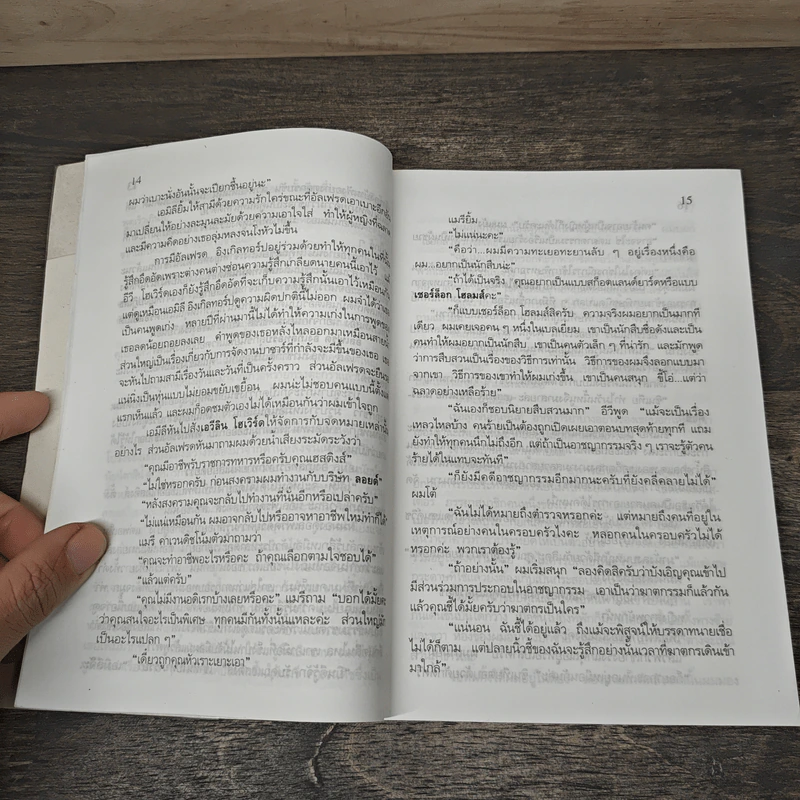 14
ผมว่าเบาะนั่งอันนั้นจะเปียกชื้นอยู่นะ”
เอมิลียิ้มให้สามีด้วยความรักใคร่ขณะที่อัลเฟรดเอาเบาะอีกอัน
มาเปลี่ยนให้อย่างละมุนละมัยด้วยความเอาใจใส่ ทำให้ผู้หญิงที่ฉลาด
และมีความคิดอย่างเธอลุ่มหลงจนโงหัวไม่ขึ้น
การมีอัลเฟรด อิงเกิลทอร์ปอยู่ร่วมด้วยทำให้ทุกคนในที่นั้น
รู้สึกอึดอัดเพราะต่างคนต่างซ่อนความรู้สึกเกลียดนายคนนี้เอาไว้ แม้
อีวี โฮเวิร์ดเองก็ยังรู้สึกอึดอัดที่จะเก็บความรู้สึกนั้นเอาไว้เหมือนกัน
แต่ดูเหมือนเอมิลี อิงเกิลทอร์ปดูความผิดปกตินี้ไม่ออก ผมจำได้ว่าเธอ
เป็นคนพูดเก่ง หลายปีที่ผ่านมานี้ไม่ได้ทำให้ความเก่งในการพูดของ
เธอลดน้อยถอยลงเลย คำพูดของเธอหลั่งไหลออกมาเหมือนสายน้ำ
ส่วนใหญ่เป็นเรื่องเกี่ยวกับการจัดงานบาซาร์ที่กำลังจะมีขึ้นของเธอ เธอ
จะหันไปถามสามีเรื่องวันและวันที่เป็นครั้งคราว ส่วนอัลเฟรดจะยืน
แน่นิ่งเป็นหุ่นแบบไม่ยอมขยับเขยื้อน ผมน่ะไม่ชอบคนแบบนี้ตั้งแต่
แรกเห็นแล้ว และผมก็อดชมตัวเองไม่ได้เหมือนกันว่าผมเข้าใจถูก
เอมิลีหันไปสั่งเอวีลิน โฮเวิร์ดให้จัดการกับจดหมายเหล่านั้น
อย่างไร ส่วนอัลเฟรดหันมาถามผมด้วยน้ำเสียงระมัดระวังว่า
“คุณมีอาชีพรับราชการทหารหรือครับคุณเฮสติงส์”
“ไม่ใช่หรอกครับ ก่อนสงครามผมทำงานกับบริษัท ลอยด์”
“หลังสงครามคุณจะกลับไปทำงานที่นั่นอีกหรือเปล่าครับ”
“ไม่แน่เหมือนกัน ผมอาจกลับไปหรืออาจหาอาชีพใหม่ทำก็ได้”
แมรี คาเวนดิชโน้มตัวมาถามว่า
“คุณจะทำอาชีพอะไรหรือคะ ถ้าคุณเลือกตามใจชอบได้”
“แล้วแต่ครับ”
“คุณไม่มีงานอดิเรกบ้างเลยหรือคะ” แมรีถาม “บอกได้มั้ยคะ
ว่าคุณสนใจอะไรเป็นพิเศษ ทุกคนมีกันทั้งนั้นแหละค่ะ ส่วนใหญ่มัก
เป็นอะไรแปลก ๆ”
“เดี๋ยวถูกคุณหัวเราะเยาะเอา”
15
แมรียิ้ม
“ไม่แน่นะคะ”
“คือว่า...ผมมีความทะเยอทะยานลับ ๆ อยู่เรื่องหนึ่งคือ
ผม...อยากเป็นนักสืบน่ะ”
“ถ้าได้เป็นจริง คุณอยากเป็นแบบสก็อตแลนด์ยาร์ดหรือแบบ
เชอร์ล็อก โฮลมส์คะ”
“ก็แบบเชอร์ล็อก โฮลมส์สิครับ ความจริงผมอยากเป็นมากที
เดียว ผมเคยเจอคน ๆ หนึ่งในเบลเยี่ยม เขาเป็นนักสืบชื่อดังและเป็น
คนทำให้ผมอยากเป็นนักสืบ เขาเป็นคนตัวเล็ก ๆ ที่น่ารัก และมักพูด
ว่าการสืบสวนเป็นเรื่องของวิธีการเท่านั้น วิธีการของผมจึงลอกแบบมา
จากเขา วิธีการของเขาทำให้ผมเก่งขึ้น เขาเป็นคนสนุก ขี้โอ่...แต่ว่า
ฉลาดอย่างเหลือร้าย”
“ฉันเองก็ชอบนิยายสืบสวนมาก” อีวีพูด “แม้จะเป็นเรื่อง
เหลวไหลบ้าง คนร้ายเป็นต้องถูกเปิดเผยเอาตอนบทสุดท้ายทุกที แถม
ยังทำให้ทุกคนนึกไม่ถึงอีก แต่ถ้าเป็นอาชญากรรมจริง ๆ เราจะรู้ตัวคน
ร้ายได้ในแทบจะทันที”
“ก็ยังมีคดีอาชญากรรมอีกมากนะครับที่ยังคลี่คลายไม่ได้”
ผมโต้
“ฉันไม่ได้หมายถึงตำรวจหรอกค่ะ แต่หมายถึงคนที่อยู่ใน
เหตุการณ์อย่างคนในครอบครัวไงคะ หลอกคนในครอบครัวไม่ได้
หรอกค่ะ พวกเราต้องรู้”
“ถ้าอย่างนั้น” ผมเริ่มสนุก “ลองคิดสิครับว่าบังเอิญคุณเข้าไป
มีส่วนร่วมการประกอบในอาชญากรรม เอาเป็นว่าฆาตกรรมก็แล้วกัน
แล้วคุณชี้ได้มั้ยครับว่าฆาตกรเป็นใคร”
“แน่นอน ฉันชี้ได้อยู่แล้ว ถึงแม้จะพิสูจน์ให้บรรดาทนายเชื่อ
ไม่ได้ก็ตาม แต่ปลายนิ้วชี้ของฉันจะรู้สึกอย่างนั้นเวลาที่ฆาตกรเดินเข้า
มาใกล้”